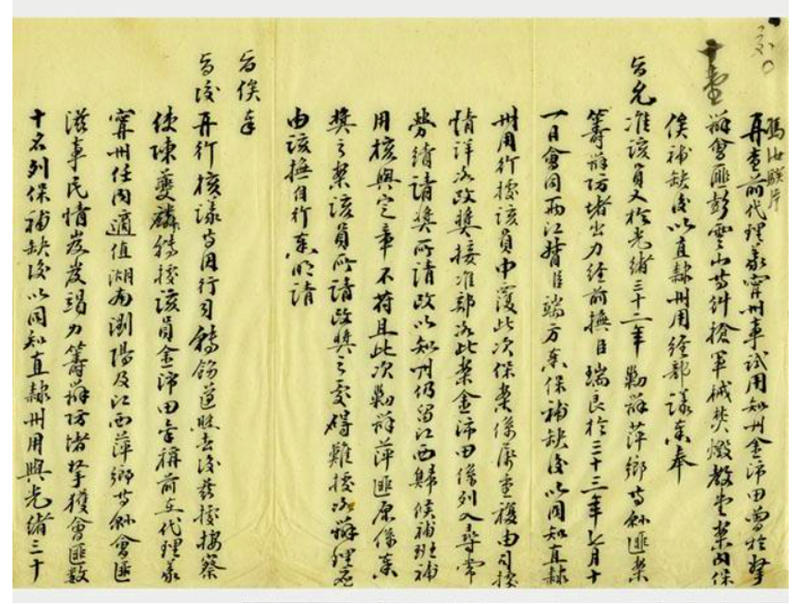 馮汝騤片
再查前代理義寧州事試用知州金沛田曾於拏
辦會匪彭雲山等糾搶軍械焚燬教堂案內保
俟補缺後以直隸州用經部議奏奉
旨允准該員又於光緒三十二年剿辦萍鄉等縣匪案
籌辦防堵出力經前撫臣瑞良於三十三年七月十
一日會同兩江督臣端方奏保補缺後以同知直隸
州用行據該員申覆此次保案係屬重複由司據
情詳咨改獎接准部咨此案金沛田係列入尋常
勞績請獎所請改以知州仍留江西歸候補班補
用核與定章不符且此次剿辦萍匪原係奏
獎之案該員所請改獎之處礙難據咨辦理應
由該撫自行奏明請
旨俟奉
旨後再行核議等因行司轉飭遵照去後茲據按察
使陳夔麟轉據該員金沛田稟稱前在代理義
寧州任內適值湖南瀏陽及江西萍鄉等縣會匪
滋事民情岌岌竭力籌辦防堵拏獲會匪數
十名列保補缺後以同知直隸州用與光緒三十